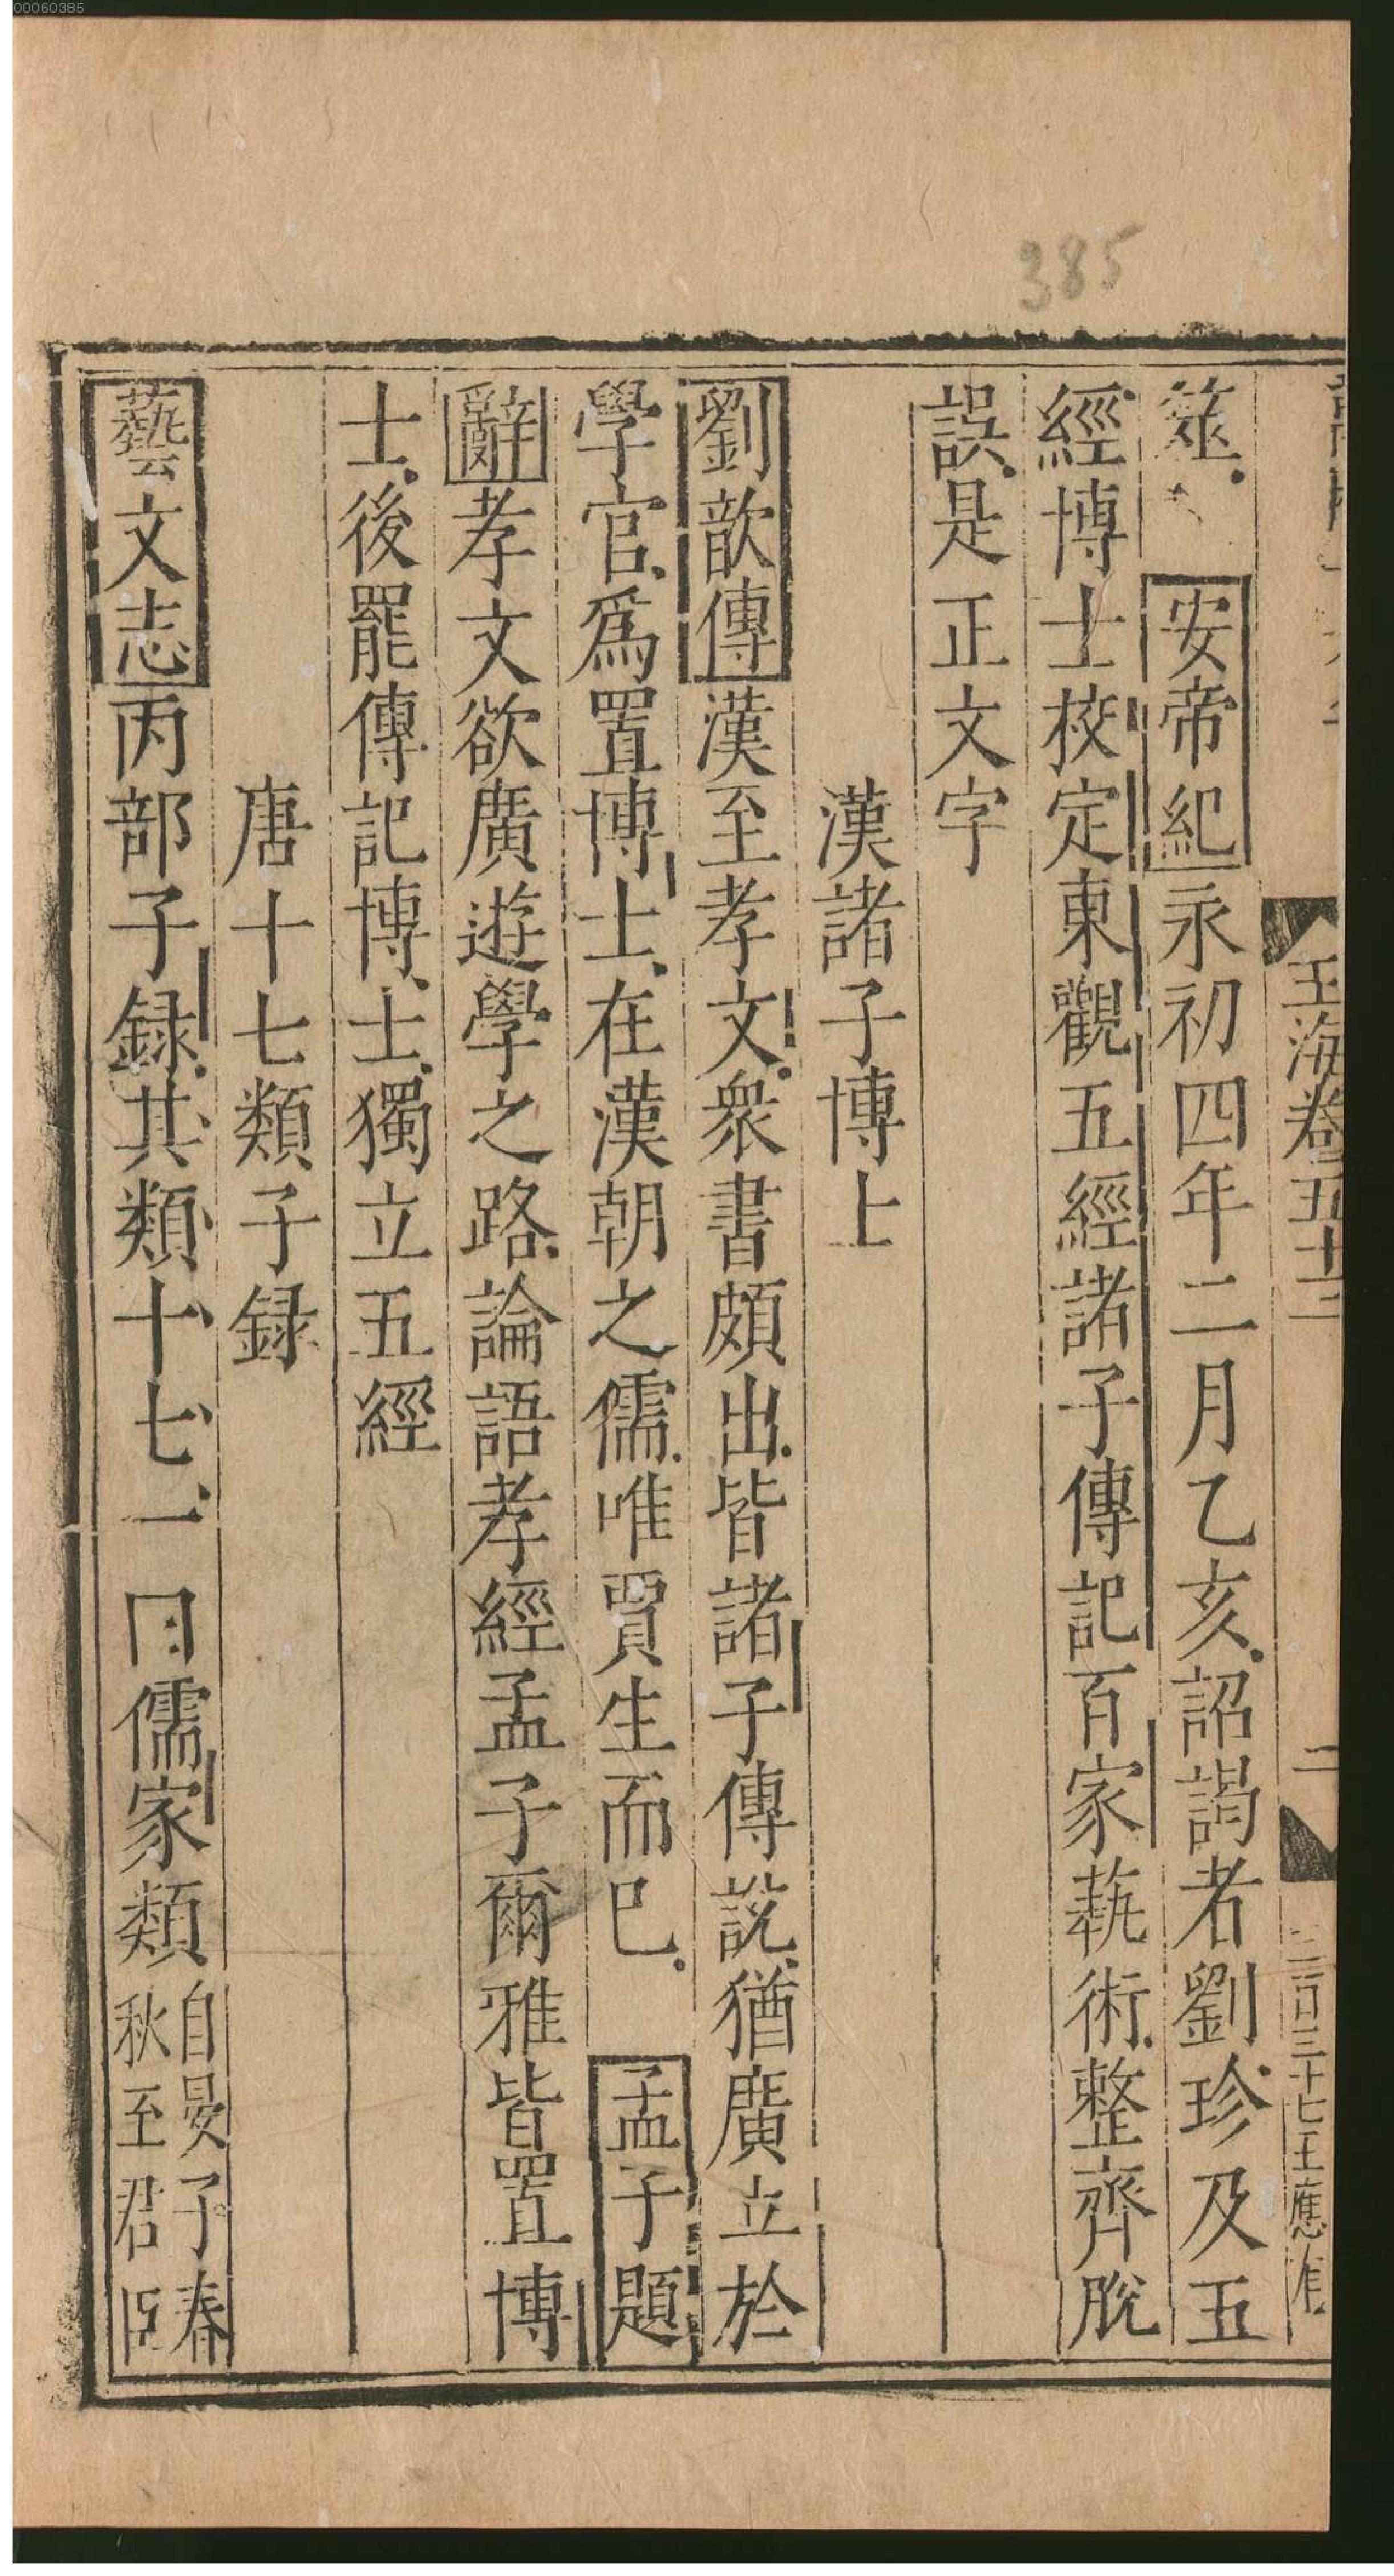 00060385
385
玉海卷五十三
二
二百三十七王應
筵 安帝紀永初四年二月乙亥詔謁者劉珍及五
經博士校定東觀五經諸子傳記百家蓺術整齊脫
誤是正文字
漢諸子博士
劉歆傳漢至孝文衆書頗出皆諸子傳說猶廣立於
學官爲置博士在漢朝之儒唯賈生而已 孟子題
辭孝文欲廣遊學之路論語孝經孟子爾雅皆置博
士後罷傳記博士獨立五經
唐十七類子録
藝文志丙部子録其類十七一曰儒家類自晏子春
秋至君臣